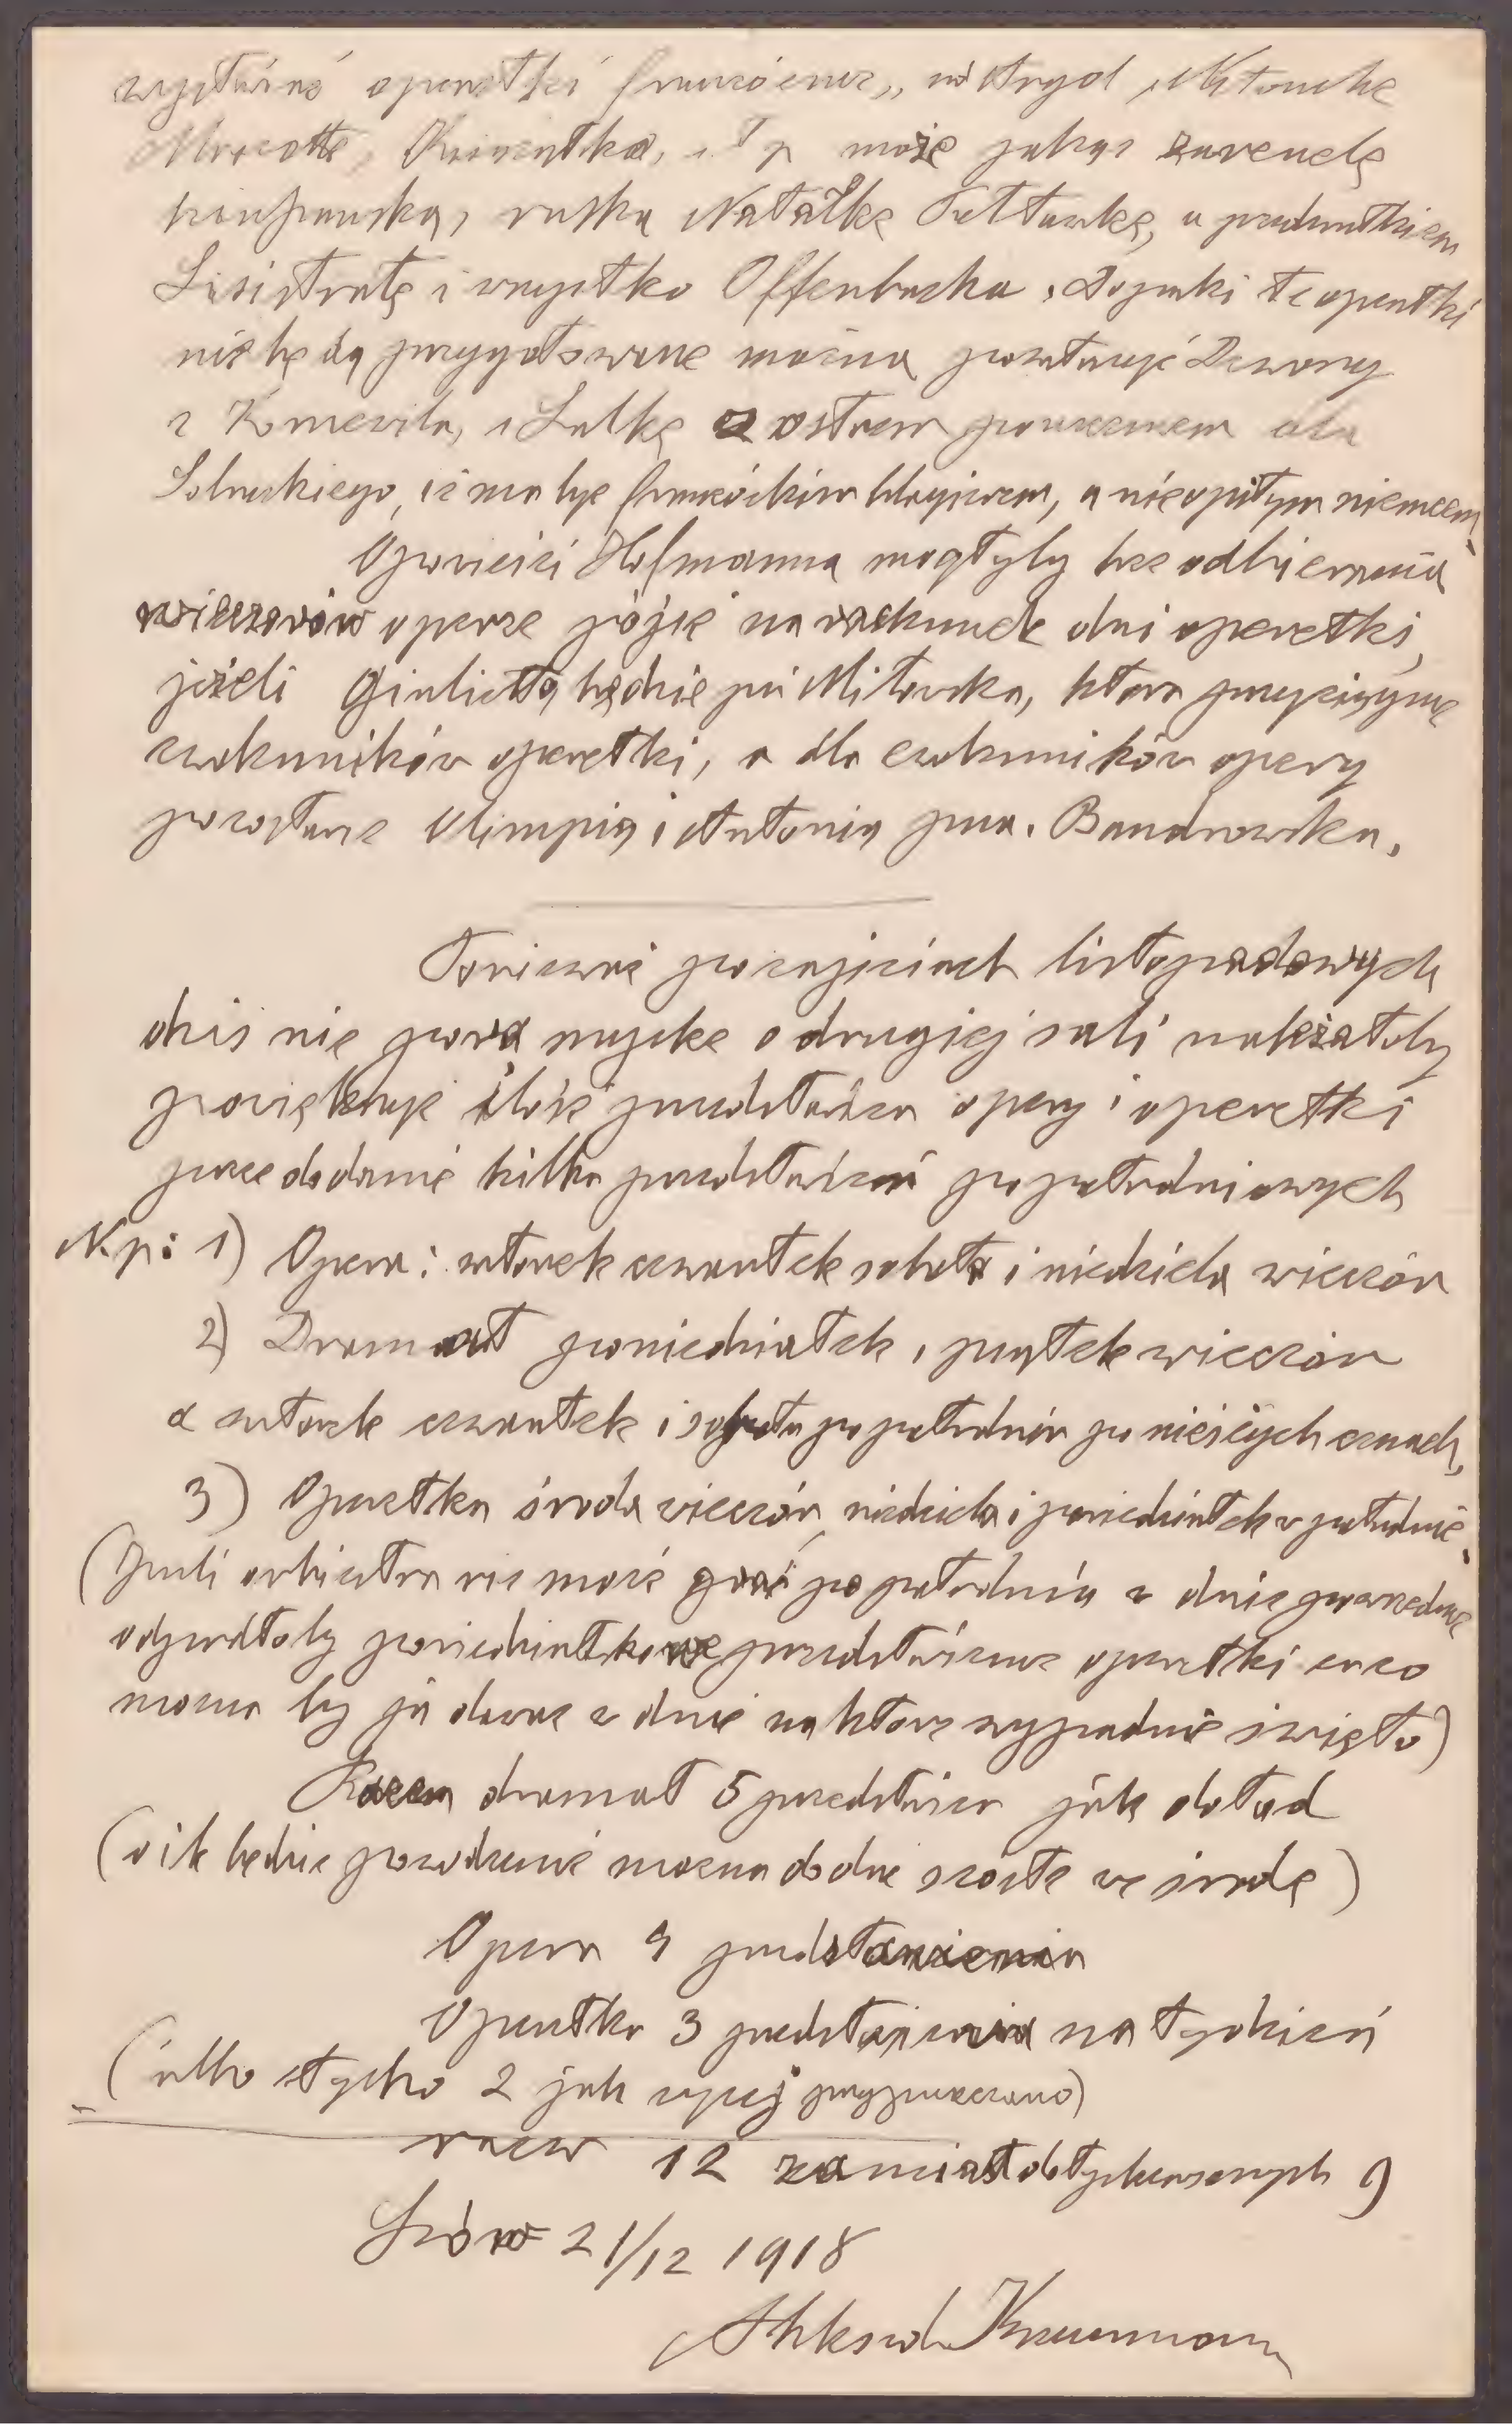 wystawiać operetki francuskie, Nitouche
Mascotte, i t p może jakąś zarzuelę
hiszpańską, ruską Natałkę Połtawkę, a przedewszystkiem
Lisistratę i wszystko Offenbacha. Dopóki te operetki
nie będą przygotowane można powtarzyć Dzwony
z Kornewilu, i Lalkę z ostrem pouczeniem dla
Solnickiego, iż ma być francuskim, a nie opitym niemcem.
Opowieści Hofmanna mogłyby bez odbierania
wieczorów operze pójść na rachunek dni operetki,
jeżeli Giuliettą będzie pni Miłowska, która przyciągnie
zwolenników operetki, a dla zwolenników opery
pozostanie Olimpią i Antonią pna. Bandrowska.
Ponieważ po zajściach listopadowych
dziś nie pora myśleć o drugiej sali należałoby
powiększyć ilość przedstawień opery i operetki
przez dodanie kilku przedstawień popołudniowych
N.p: 1) Opera: wtorek czwartek sobota i niedziela wieczór
2) Dramat poniedziałek, piątek wieczór
a wtorek czwartek i sobota popołudniu po niższych cenach,
3) Operetka środa wieczór, niedziela i poniedziałek popołudnie.
(Jeżeli orkiestra nie może grać po południu w dnie powszednie
odpadłoby poniedziałkowe przedstawienie operetki
można by je dawać w dnie na które wypadnie święto)
Razem dramat 5 przedstawień jak dotąd
(o ile będzie powodzenie można dodać szóste we środę)
Opera 4 przedstawienia
Operetka 3 przedstawienia na tydzień
(albo tylko 2 jak wyżej przypuszczano)
razem 12 zamiast dotychczasowych 9
Lwów 21/12 1918